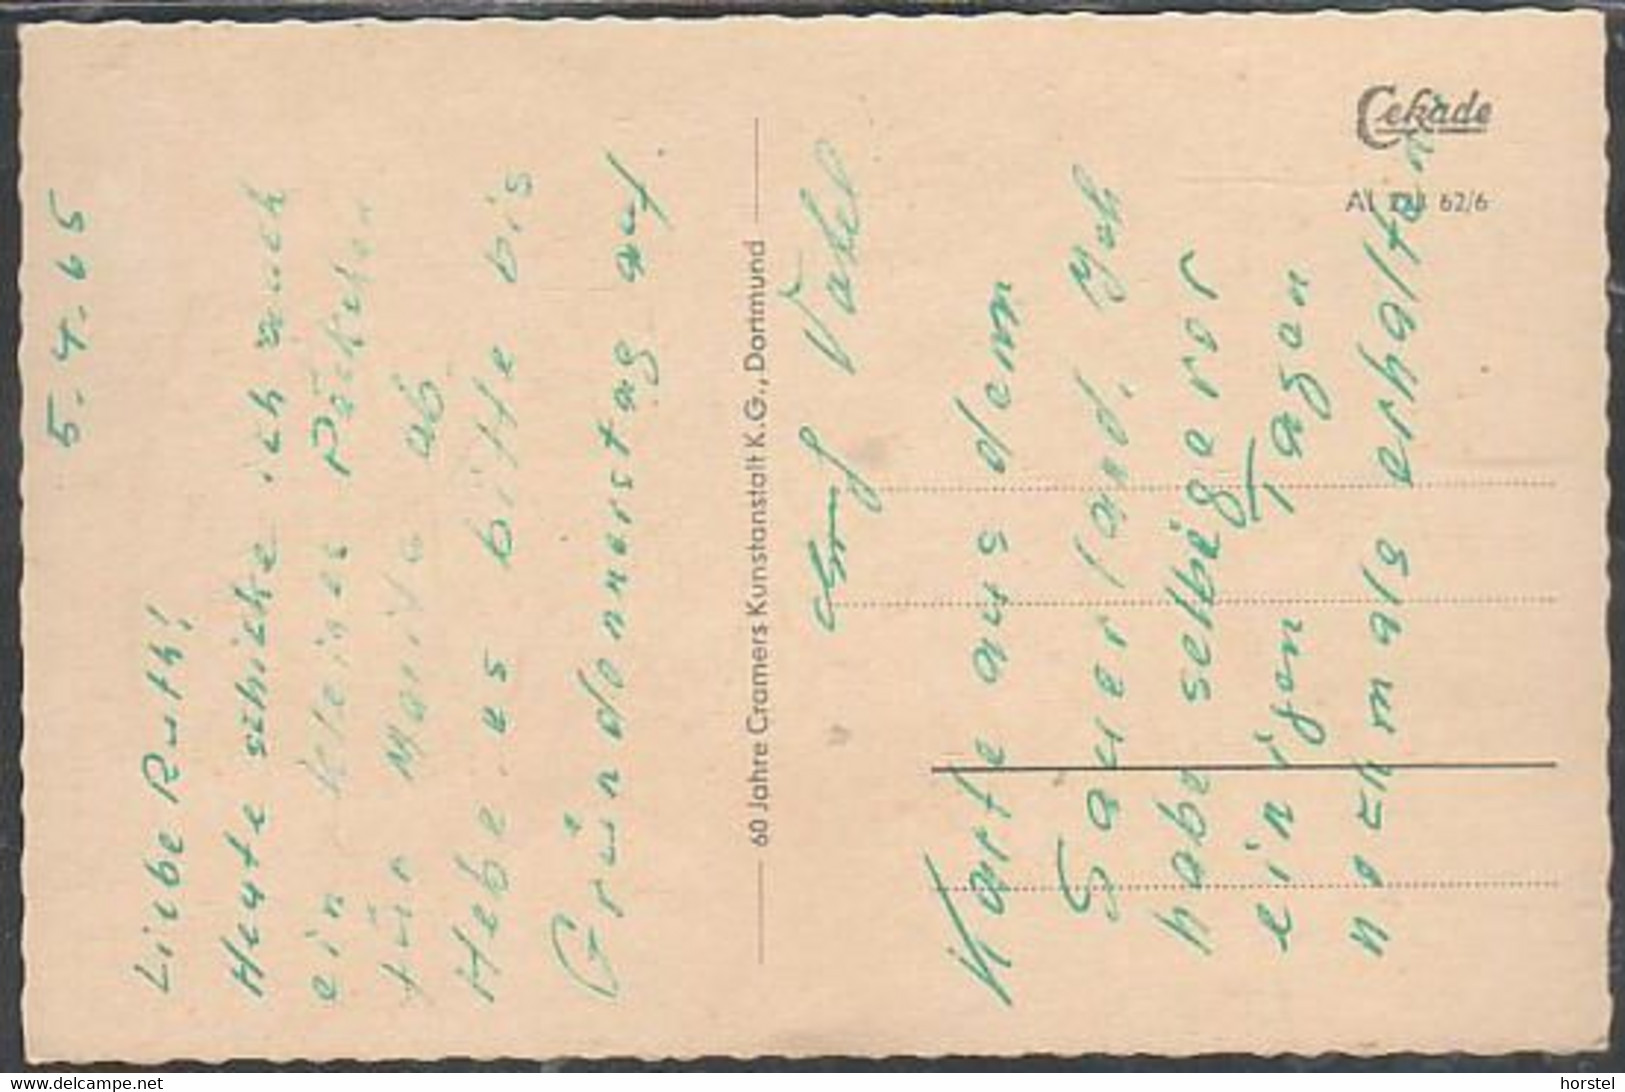 5.4.65
Liebe Ruth!
Heute schicke ich auch
ein kleines Päckchen
für Marita ab
Hebe es bitte bis
Gründonnerstag auf
Vatel
Karte aus dem
Sauerland. Ich
habe selbige vor
einigen Tagen
nozmals erhalten
60 Jahre Cramers Kunstanstalt K.G., Dortmund
Cekade
Al 62/6
www.delcampe.net
horstel